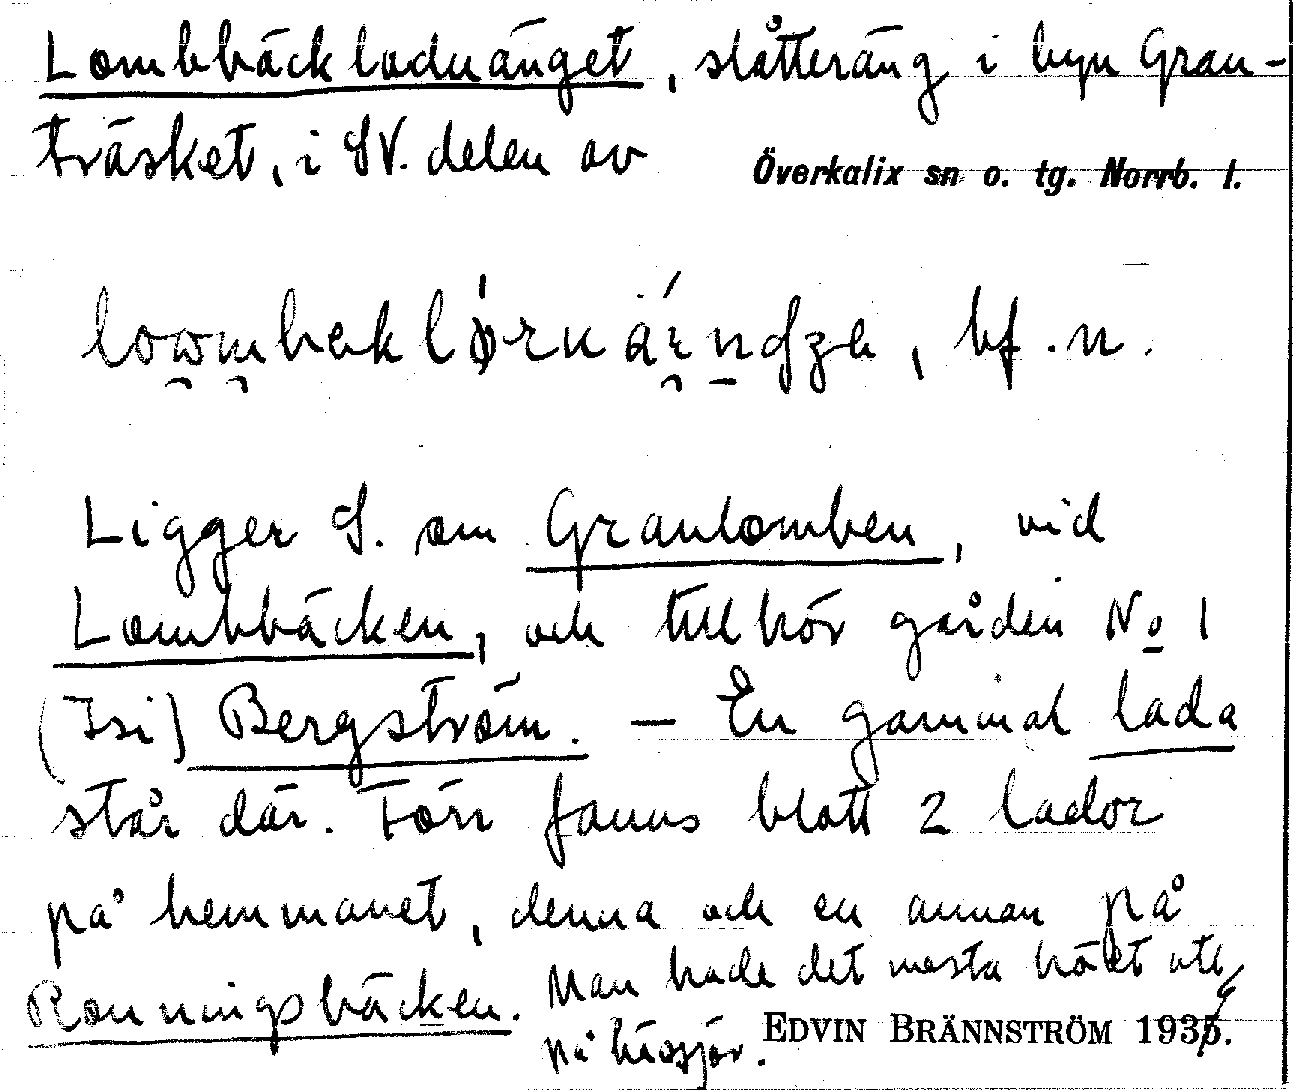 Lombbäckladuänget, slåtteräng i byn Gran-
träsket, i SV. delen av Överkalix sn o. tg. Norrb. l.
bf. n.
Ligger S. om Granlomben, vid
Lombbäcken, och tillhör gården No 1
(Isi) Bergström. — En gammal lada
står där. Förr fanns blott 2 lador
på hemmanet, denna och en annan på
Rönningsbäcken. Man hade det mesta höet ute
på hässjor. EDVIN BRÄNNSTRÖM 1936.